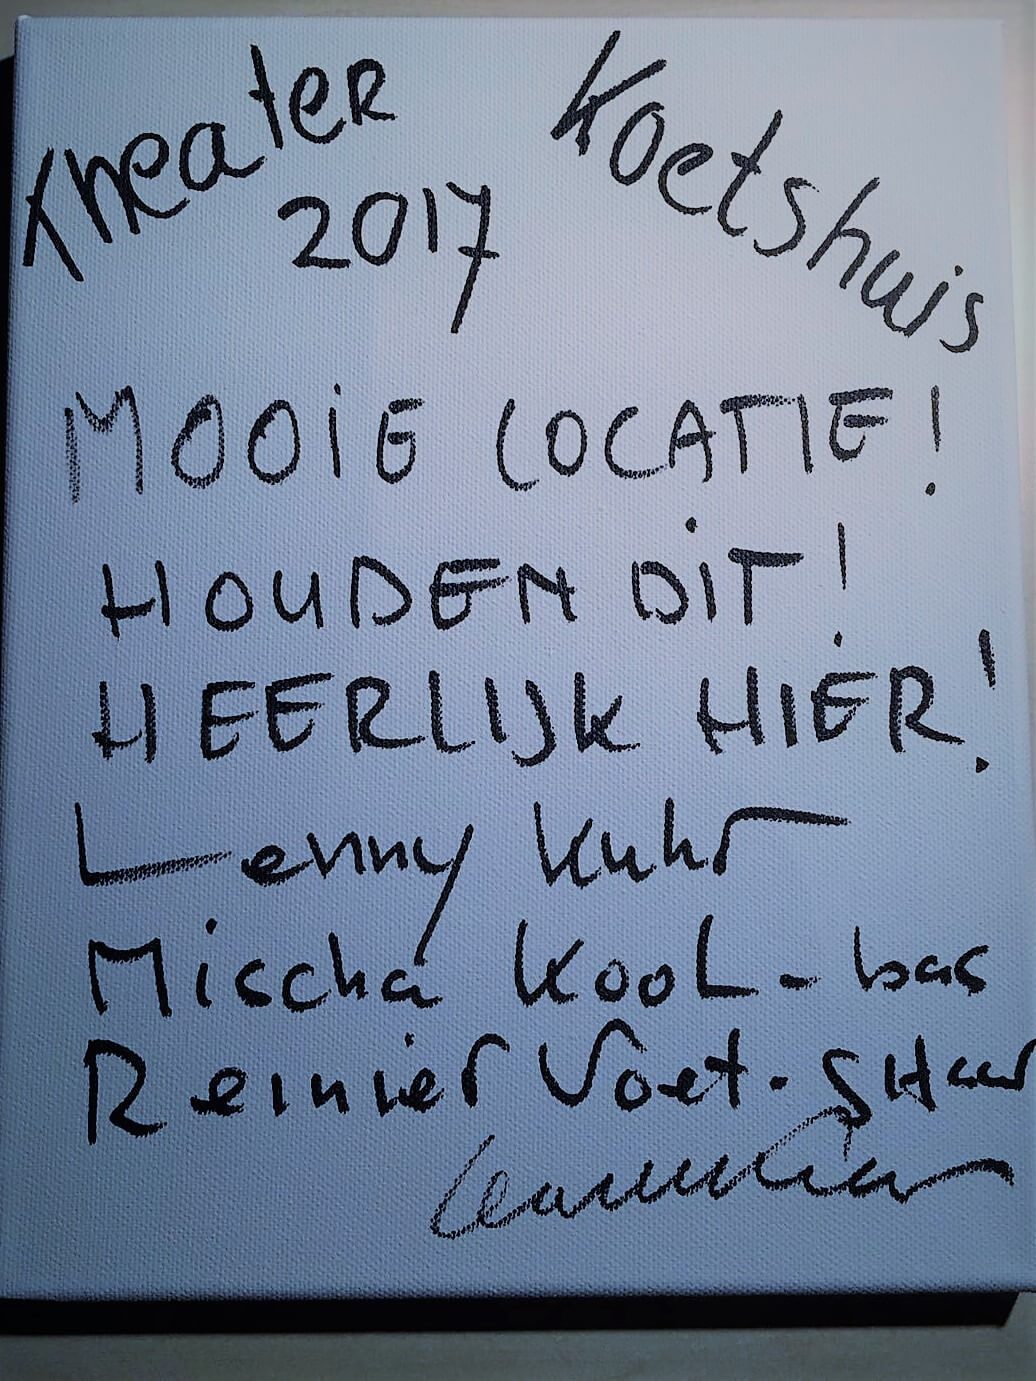 Theater Koetshuis
2017
MOOiE LOCATIE!
HOUDEN DiT!
HEERLIJK HIER!
Lenny Kuhr
Mischa Kool - bas
Reinier Voet -